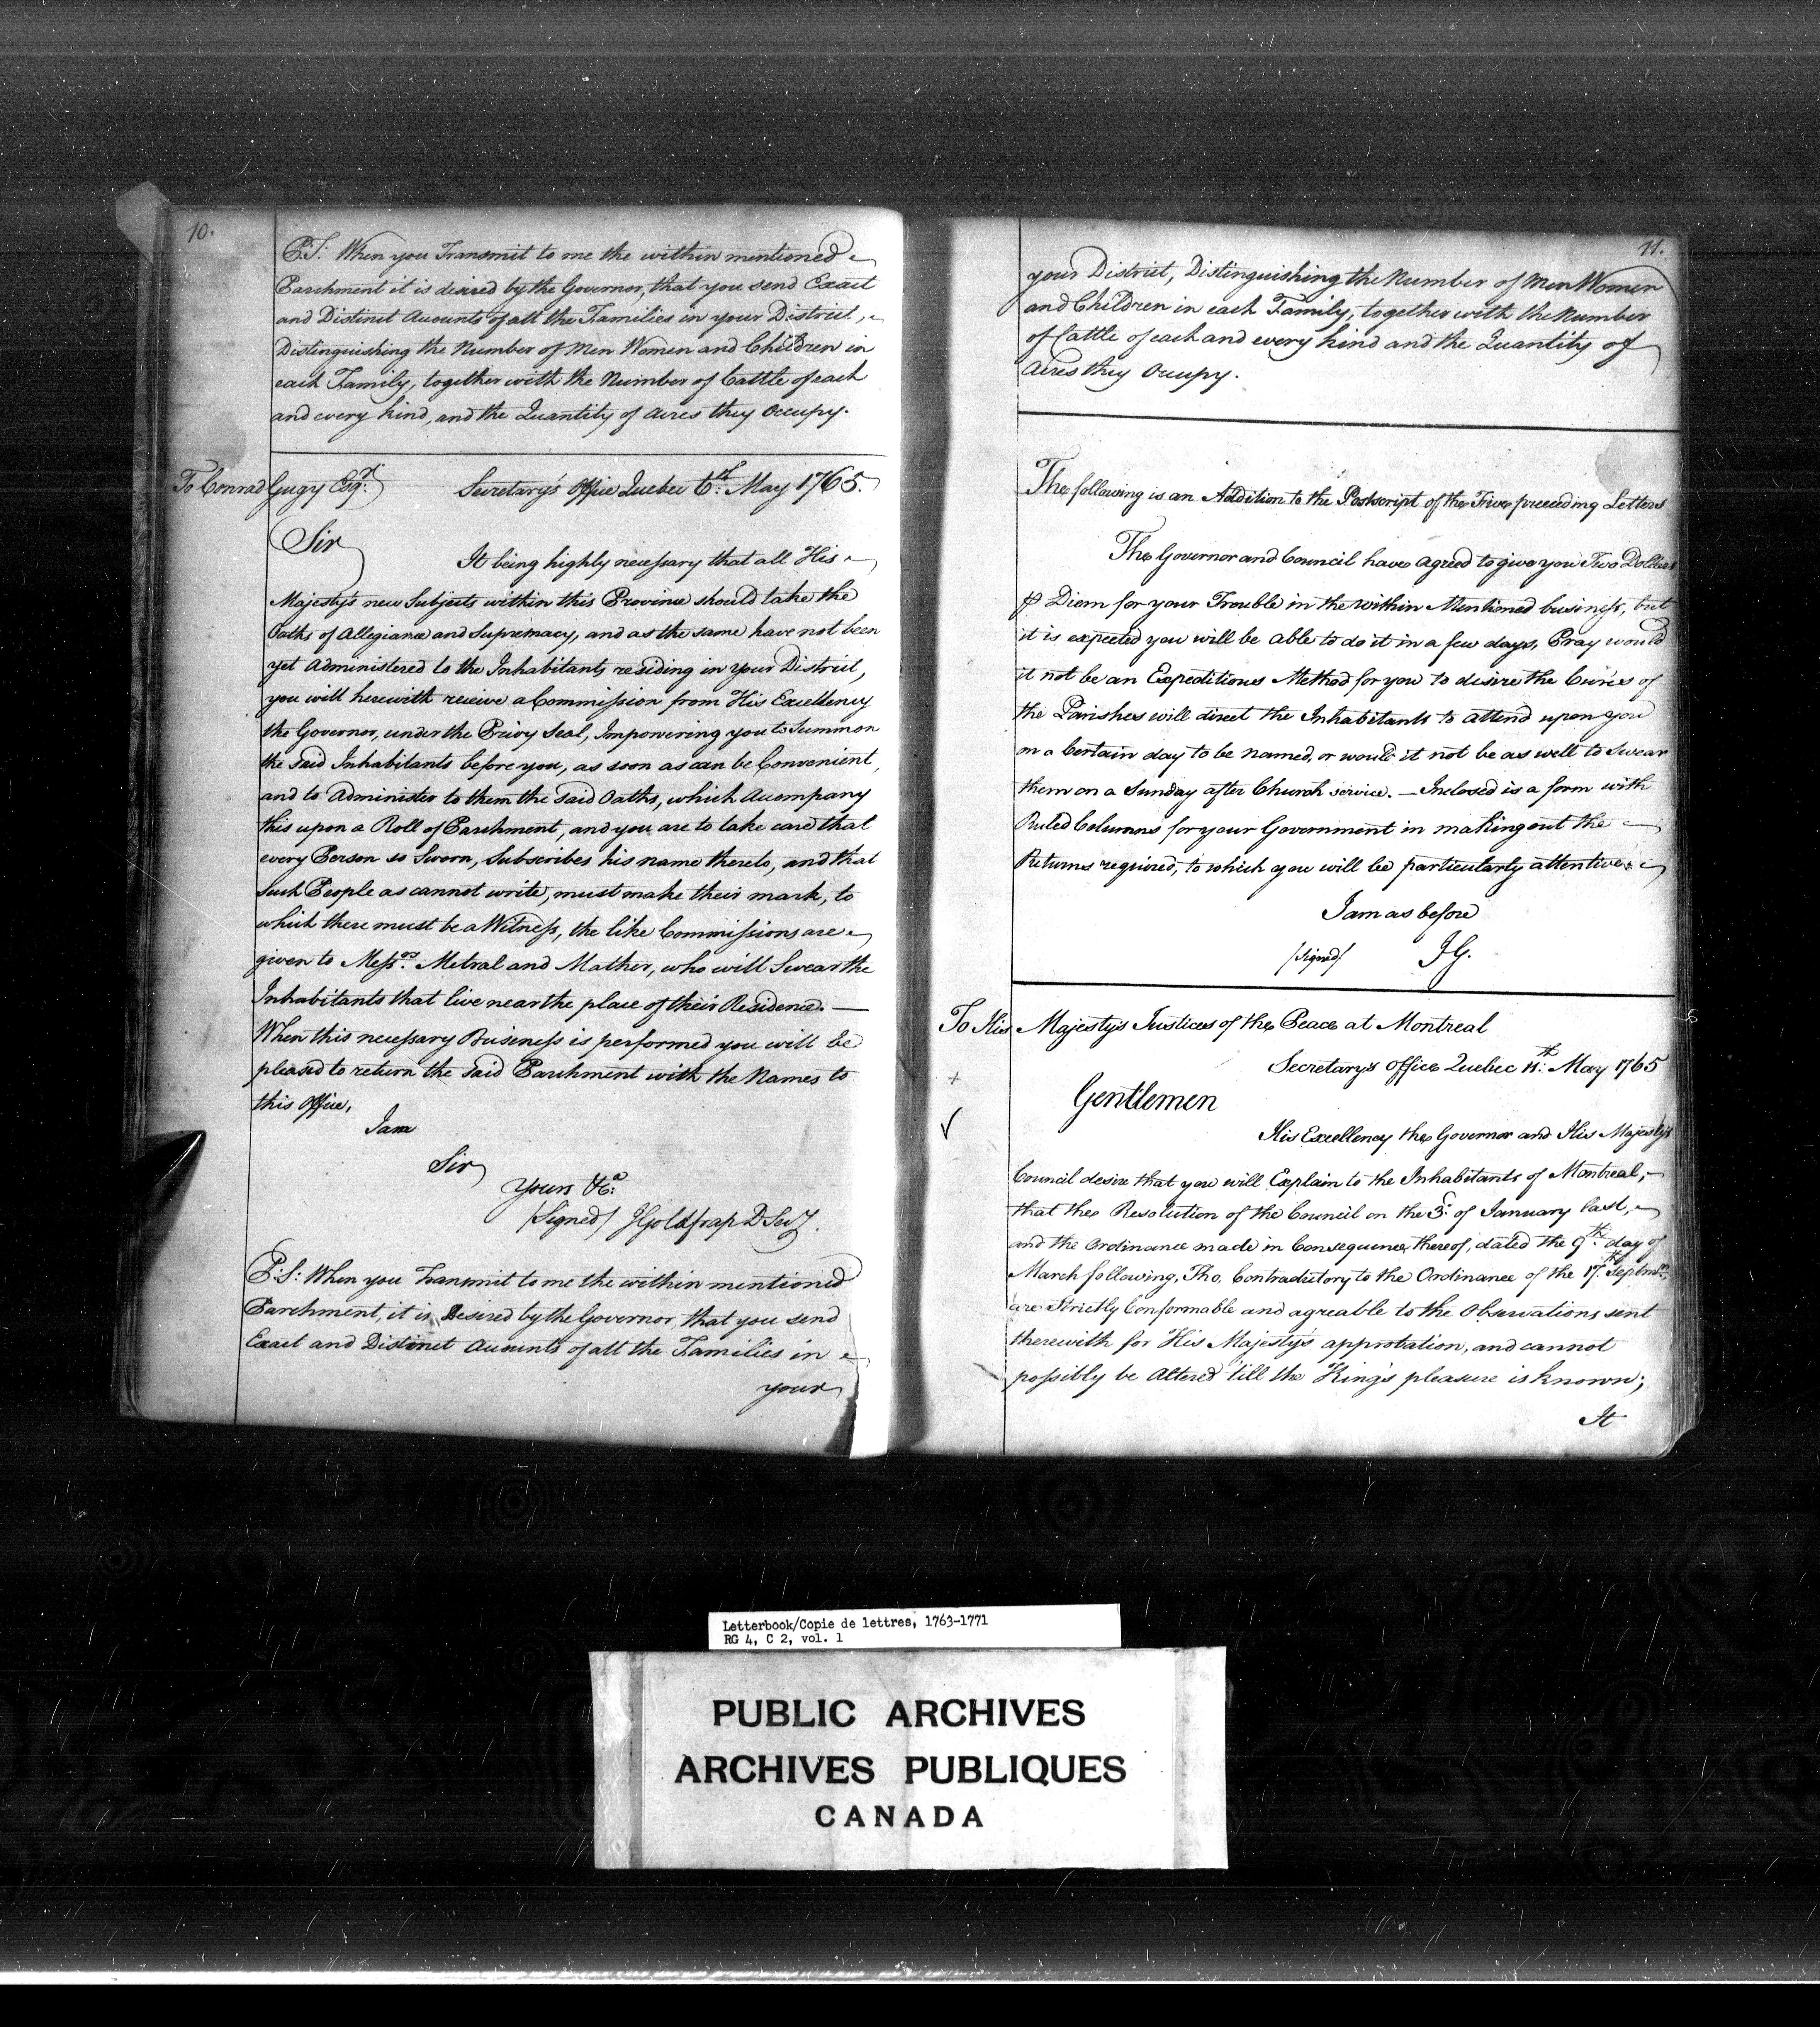 10.
P:S: When you Transmit to me the within mentioned
Parchment it is desired by the Governor, that you send Exact
and Distinct Accounts of all the Families in your District,
Distinguishing the Number of Men Women and Children in
each Family, together with the Number of Cattle of each
and every kind, and the Quantity of acres they Occupy.
To Conrad Gugy Esqr. Secretary's Office Quebec 6th. May 1765.
Sir
It being highly necessary that all His
Majesty's new Subjects within this Province should take the
Oaths of Allegiance and Supremacy, and as the same have not been
yet Administered to the Inhabitants residing in your District,
you will herewith recieve a Commission from His Excellency
the Governor, under the Privy Seal, Impowering you to Summon
the said Inhabitants before you, as soon as can be Convenient,
and to Administer to them the said Oaths, which Accompany
this upon a Roll of Parchment, and you are to take care that
every Person so Sworn, Subscribes his name thereto, and that
such People as cannot write, must make their mark, to
which there must be a Witness, the like Commissions are
given to Messrs. Metral and Mather, who will Swear the
Inhabitants that live near the place of their Residence. —
When this necessary Business is performed you will be
pleased to return the said Parchment with the Names to
this Office,
I am
Sir
Yours &ca.
/Signed/ J Goldfrap D Secy.
P:S: When you Transmit to me the within mentioned
Parchment, it is Desired by the Governor, that you send
Exact and Distinct Accounts of all the Families in
your
11.
your District, Distinguishing the Number of Men Women
and Children in each Family, together with the Number
of Cattle of each and every kind and the Quantity of
Acres they Occupy.
The following is an Addition to the Postscript of the Five preceeding Letters
The Governor and Council have agreed to give you Two Dollars
⅌ Diem for your Trouble in the within Mentioned business, but
it is expected you will be able to do it in a few days, Pray would
it not be an Expeditious Method for you to desire the Curés of
the Parishes will direct the Inhabitants to attend upon you
on a Certain day to be named, or would it not be as well to Swear
them on a Sunday after Church service. — Inclosed is a form with
Ruled Columns for your Government in making out the
Returns required, to which you will be particularly attentive.
I am as before
/Signed/ J G.
To His Majesty's Justices of the Peace at Montreal
Secretary's Office Quebec 11th. May 1765
+
Gentlemen
✓
His Excellency the Governor and His Majesty's
Council desire that you will Explain to the Inhabitants of Montreal,
that the Resolution of the Council on the 3d. of January last,
and the Ordinance made in Consequence thereof, dated the 9th. day of
March following, Tho. Contradictory to the Ordinance of the 17th. Septmbr.
are Strictly Conformable and agreable to the Observations sent
therewith for His Majesty's approbation, and cannot
possibly be Altered 'till the King's pleasure is known;
It
Letterbook/Copie de lettres, 1763-1771
RG 4, C 2, vol. 1
PUBLIC ARCHIVES
ARCHIVES PUBLIQUES
CANADA